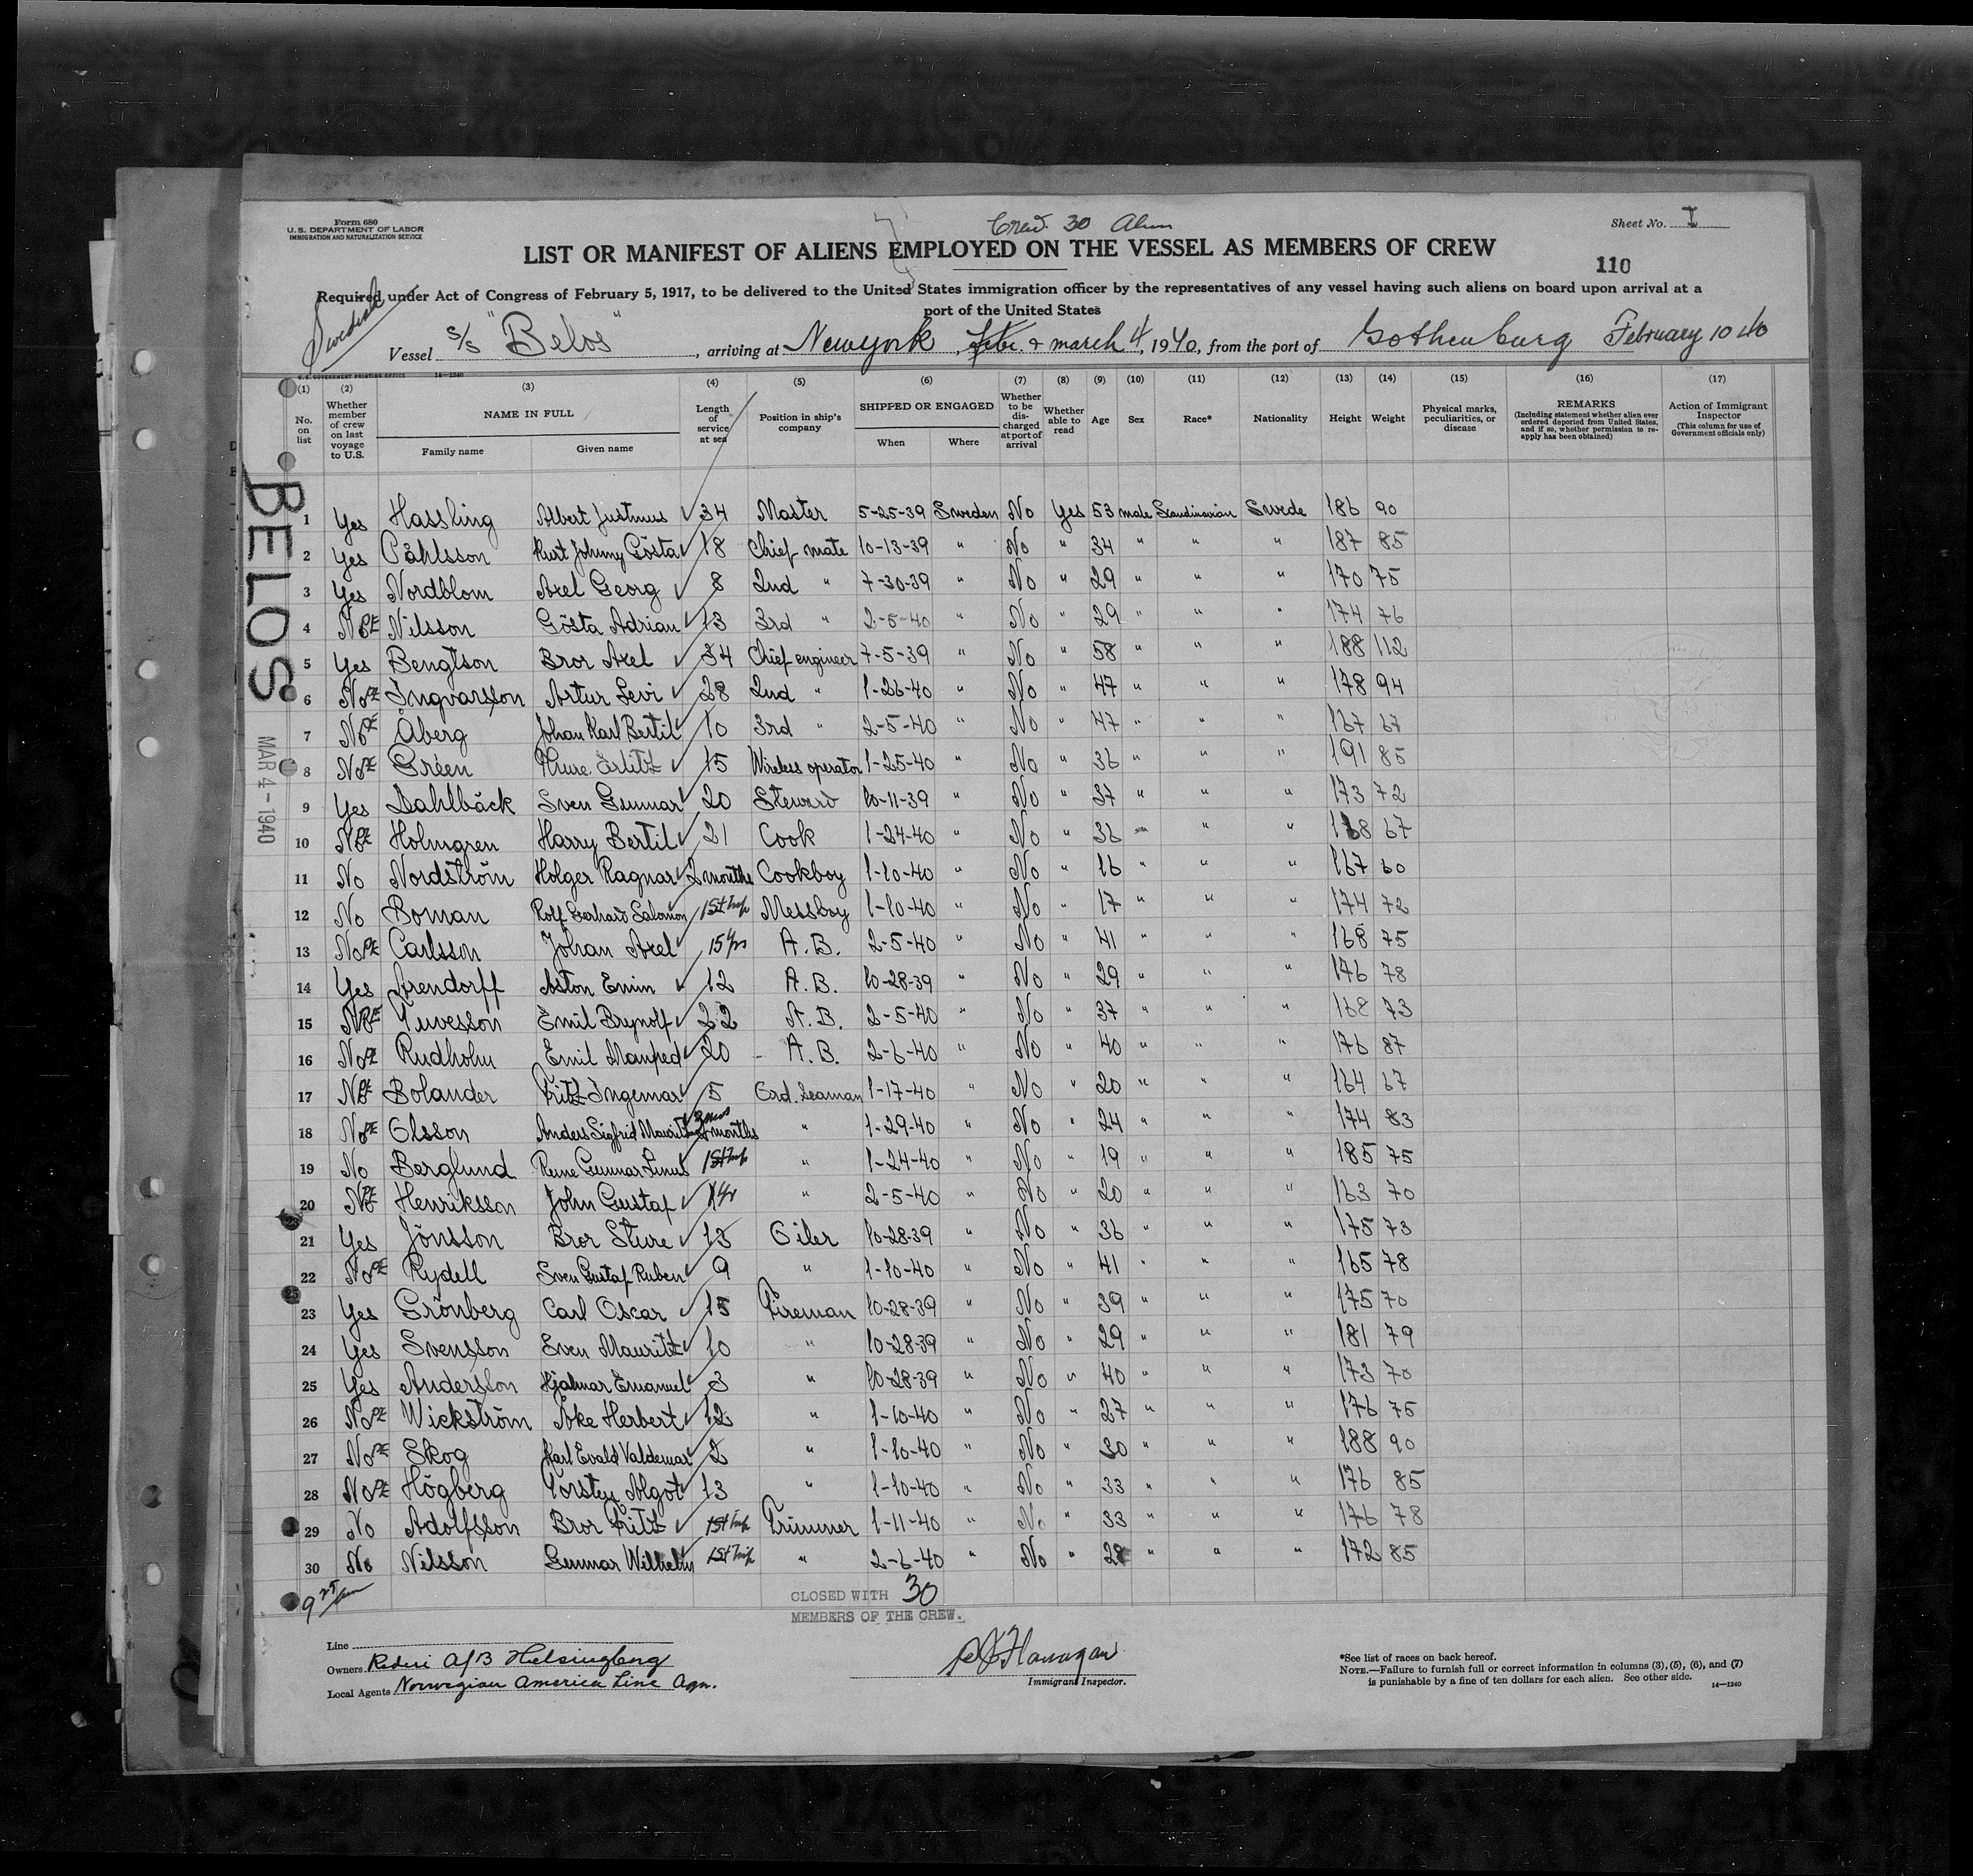 Form 680
U. S. DEPARTMENT OF LABOR
IMMIGRATION AND NATURALIZATION SERVICE
Crew 30 Alien
Sheet No. I
LIST OR MANIFEST OF ALIENS EMPLOYED ON THE VESSEL AS MEMBERS OF CREW
110
Required under Act of Congress of February 5, 1917, to be delivered to the United States immigration officer by the representatives of any vessel having such aliens on board upon arrival at a
port of the United States
Swedish
Vessel S/S "Belos", arriving at Newyork, march 4, 1940, from the port of Gothenburg February 10 40
U. S. GOVERNMENT PRINTING OFFICE 14—1240
(1) (2) (3) (4) (5) (6) (7) (8) (9) (10) (11) (12) (13) (14) (15) (16) (17)
No. on list
Whether member of crew on last voyage to U.S.
NAME IN FULL
Family name Given name
Length of service at sea
Position in ship's company
SHIPPED OR ENGAGED
When Where
Whether to be discharged at port of arrival
Whether able to read
Age
Sex
Race*
Nationality
Height
Weight
Physical marks, peculiarities, or disease
REMARKS
(Including statement whether alien ever ordered deported from United States, and if so, whether permission to reapply has been obtained)
Action of Immigrant Inspector
(This column for use of Government officials only)
BELOS
MAR 4 - 1940
1 Yes Hassling Albert Justinus 34 Master 5-25-39 Sweden No Yes 53 male Scandinavian Swede 186 90
2 Yes Påhlsson Kurt Johnny Gösta 18 Chief mate 10-13-39 " No " 34 " " " 187 85
3 Yes Nordblom Axel Georg 8 2nd " 7-30-39 " No " 29 " " " 170 75
4 No PE Nilsson Gösta Adrian 13 3rd " 2-5-40 " No " 29 " " " 174 76
5 Yes Bengtson Bror Axel 34 Chief engineer 7-5-39 " No " 58 " " " 188 112
6 No PE Ingvarsson Artur Levi 28 2nd " 1-26-40 " No " 47 " " " 178 94
7 No PE Åberg Johan Karl Bertil 10 3rd " 2-5-40 " No " 47 " " " 167 67
8 No PE Gréen Thure 15 Wireless operator 1-25-40 " No " 36 " " " 191 85
9 Yes Dahlbäck Sven Gunnar 20 Steward 10-11-39 " No " 37 " " " 173 72
10 No PE Holmgren Harry Bertil 21 Cook 1-24-40 " No " 36 " " " 168 67
11 No Nordström Holger Ragnar 2 months Cookboy 1-10-40 " No " 16 " " " 167 60
12 No Boman Rolf Gerhard Salomon 1st trip Messboy 1-10-40 " No " 17 " " " 174 72
13 No PE Carlsson Johan Axel 15 yrs A.B. 2-5-40 " No " 41 " " " 168 75
14 Yes Arendorff Aston Emin 12 A.B. 10-28-39 " No " 29 " " " 176 78
15 No PE Tuvesson Emil Brynolf 22 A.B. 2-5-40 " No " 37 " " " 168 73
16 No PE Rudholm Emil Manfred 20 A.B. 2-6-40 " No " 40 " " " 176 87
17 No PE Bolander Fritz Ingemar 5 Ord. Seaman 1-17-40 " No " 20 " " " 164 67
18 No PE Olsson Anders Sigfrid months " 1-29-40 " No " 24 " " " 174 83
19 No Berglund Rune Gunnar Linus 1st trip " 1-24-40 " No " 19 " " " 185 75
20 No PE Henriksson John Gustaf 1 yr " 2-5-40 " No " 20 " " " 163 70
21 Yes Jönsson Bror Sture 13 Oiler 10-28-39 " No " 36 " " " 175 73
22 No PE Rydell Sven Gustaf Ruben 9 " 1-10-40 " No " 41 " " " 165 78
23 Yes Grönberg Carl Oscar 15 Fireman 10-28-39 " No " 39 " " " 175 70
24 Yes Svensson Sven Mauritz 10 " 10-28-39 " No " 29 " " " 181 79
25 Yes Andersson Hjalmar Emanuel 3 " 10-28-39 " No " 40 " " " 173 70
26 No PE Wickström Åke Herbert 12 " 1-10-40 " No " 27 " " " 176 75
27 No PE Skog Karl Evald Valdemar 2 " 1-10-40 " No " 30 " " " 188 90
28 No PE Högberg Torsten Algot 13 " 1-10-40 " No " 33 " " " 176 85
29 No Adolfsson Bror Fritz 1st trip Trimmer 1-11-40 " No " 33 " " " 176 78
30 No Nilsson Gunnar Wilhelm 1st trip " 2-6-40 " No " 28 " " " 172 85
9 25 am
CLOSED WITH 30
MEMBERS OF THE CREW.
Line
Owners Rederi A/B Helsingborg
Local Agents Norwegian America Line Agn.
Flanagan
Immigrant Inspector.
*See list of races on back hereof.
NOTE.—Failure to furnish full or correct information in columns (3), (5), (6), and (7)
is punishable by a fine of ten dollars for each alien. See other side.
14—1240